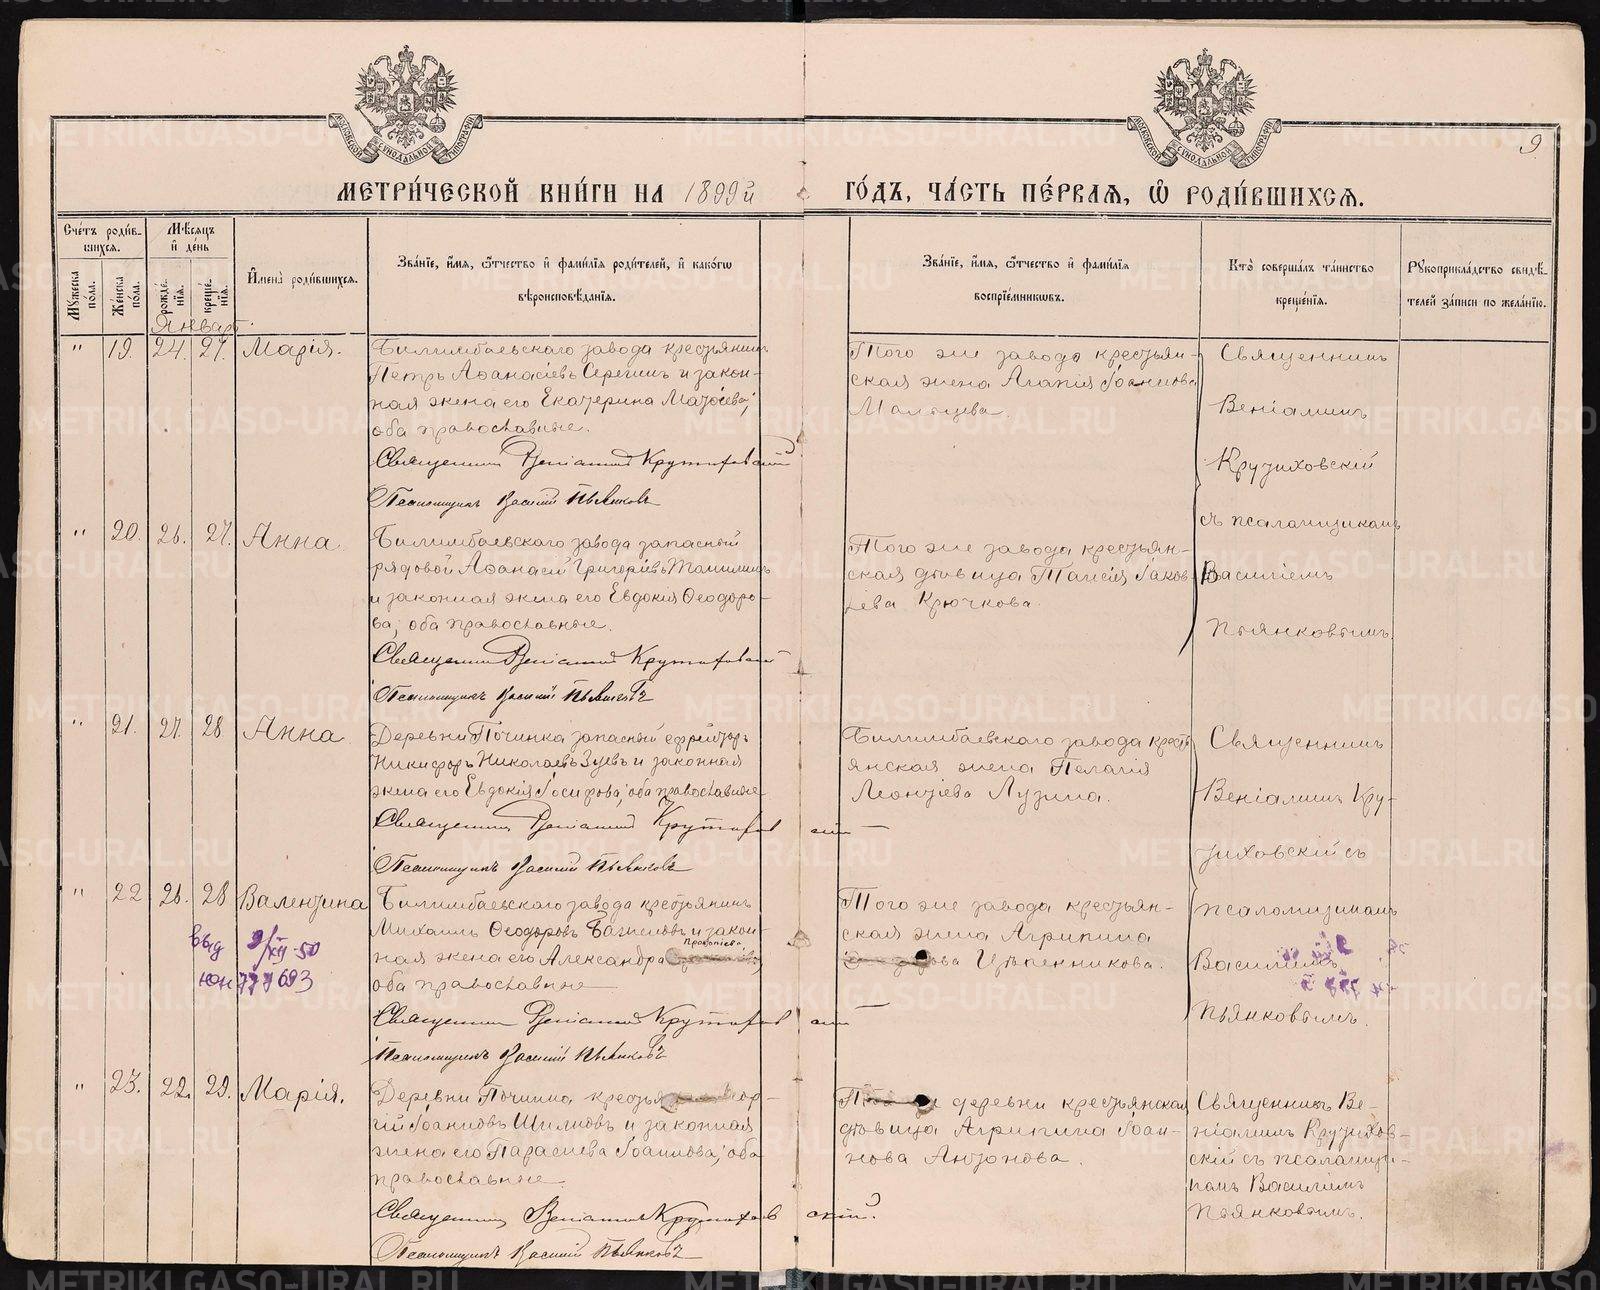 МЕТРИ́ЧЕСКОЙ КНИ́ГИ НА 1899й ГО́ДЪ, ЧА́СТЬ ПЕ́РВАЯ, Ѡ РОДИ́ВШИХСЯ.
9
Сче́тъ роди́в-
шихся.
Мѣ́сяцъ
и де́нь
Мꙋ́жеска по́ла.
Же́нска по́ла.
рожде́нїя.
креще́нїя.
Имена̀ роди́вшихся.
Зва́нїе, и́мя, ѻ҆́тчество и фами́лїя роди́телей, и како́гѡ
вѣроисповѣ́данїя.
Зва́нїе, и́мя, ѻ҆́тчество и фами́лїя
воспрїе́мникѡвъ.
Кто̀ соверша́лъ та́инство
креще́нїя.
Рꙋкоприкла́дство свидѣ́-
телей за́писи по жела́нїю.
Январь.
" 19. 24. 27. Марія.
Билимбаевскаго завода крестьянинъ
Петръ Аѳанасіевъ Серегинъ и закон-
ная жена его Екатерина
оба православные.
Священникъ Веніаминъ Крутиховскій
Псаломщикъ Василій Пьянковъ
Того же завода крестьян-
ская жена Агапія Іоаннова
Мальцева.
Священникъ
Веніаминъ
Крутиховскій
съ псаломщикомъ
Василіемъ
Пьянковымъ.
" 20. 26. 27. Анна.
Билимбаевскаго завода запасный
рядовой Аѳанасій Григоріевъ Томилинъ
и законная жена его Евдокія Ѳеодоро-
ва; оба православные.
Священникъ Веніаминъ Крутиховскій
Псаломщикъ Василій Пьянковъ
Того же завода крестьян-
ская дѣвица Таисія Іаков-
лева Крючкова.
" 21. 27. 28. Анна
Деревни Починка запасный ефрейторъ
Никифоръ Николаевъ Зуевъ и законная
жена его Евдокія Іосифова; оба православные
Священникъ Веніаминъ Крутиховскій
Псаломщикъ Василій Пьянковъ
Билимбаевскаго завода кресть-
янская жена Пелагія
Леонтіева Лузина.
Священникъ
Веніаминъ Кру-
тиховскій съ
псаломщикомъ
Василіемъ
Пьянковымъ.
" 22 26. 28 Валентина
выд 9/XII-50
юн 777693
Билимбаевскаго завода крестьянинъ
Михаилъ Ѳеодоровъ и закон-
Прокопіева,
ная жена его Александра
оба православные
Священникъ Веніаминъ Крутиховскій
Псаломщикъ Василій Пьянковъ
Того же завода крестьян-
ская жена Агрипина
Цѣпенникова.
" 23. 22. 29. Марія.
Деревни Починка
гій Іоанновъ Шилковъ и законная
жена его Параскева Іоаннова; оба
православные.
Священникъ Веніаминъ Крутиховскій.
Псаломщикъ Василій Пьянковъ
деревни крестьянская
дѣвица Агрипина Іоан-
нова Антонова.
Священникъ Ве-
ніаминъ Крутихов-
скій съ псаломщи-
комъ Василіемъ
Пьянковымъ.
METRIKI.GASO-URAL.RU